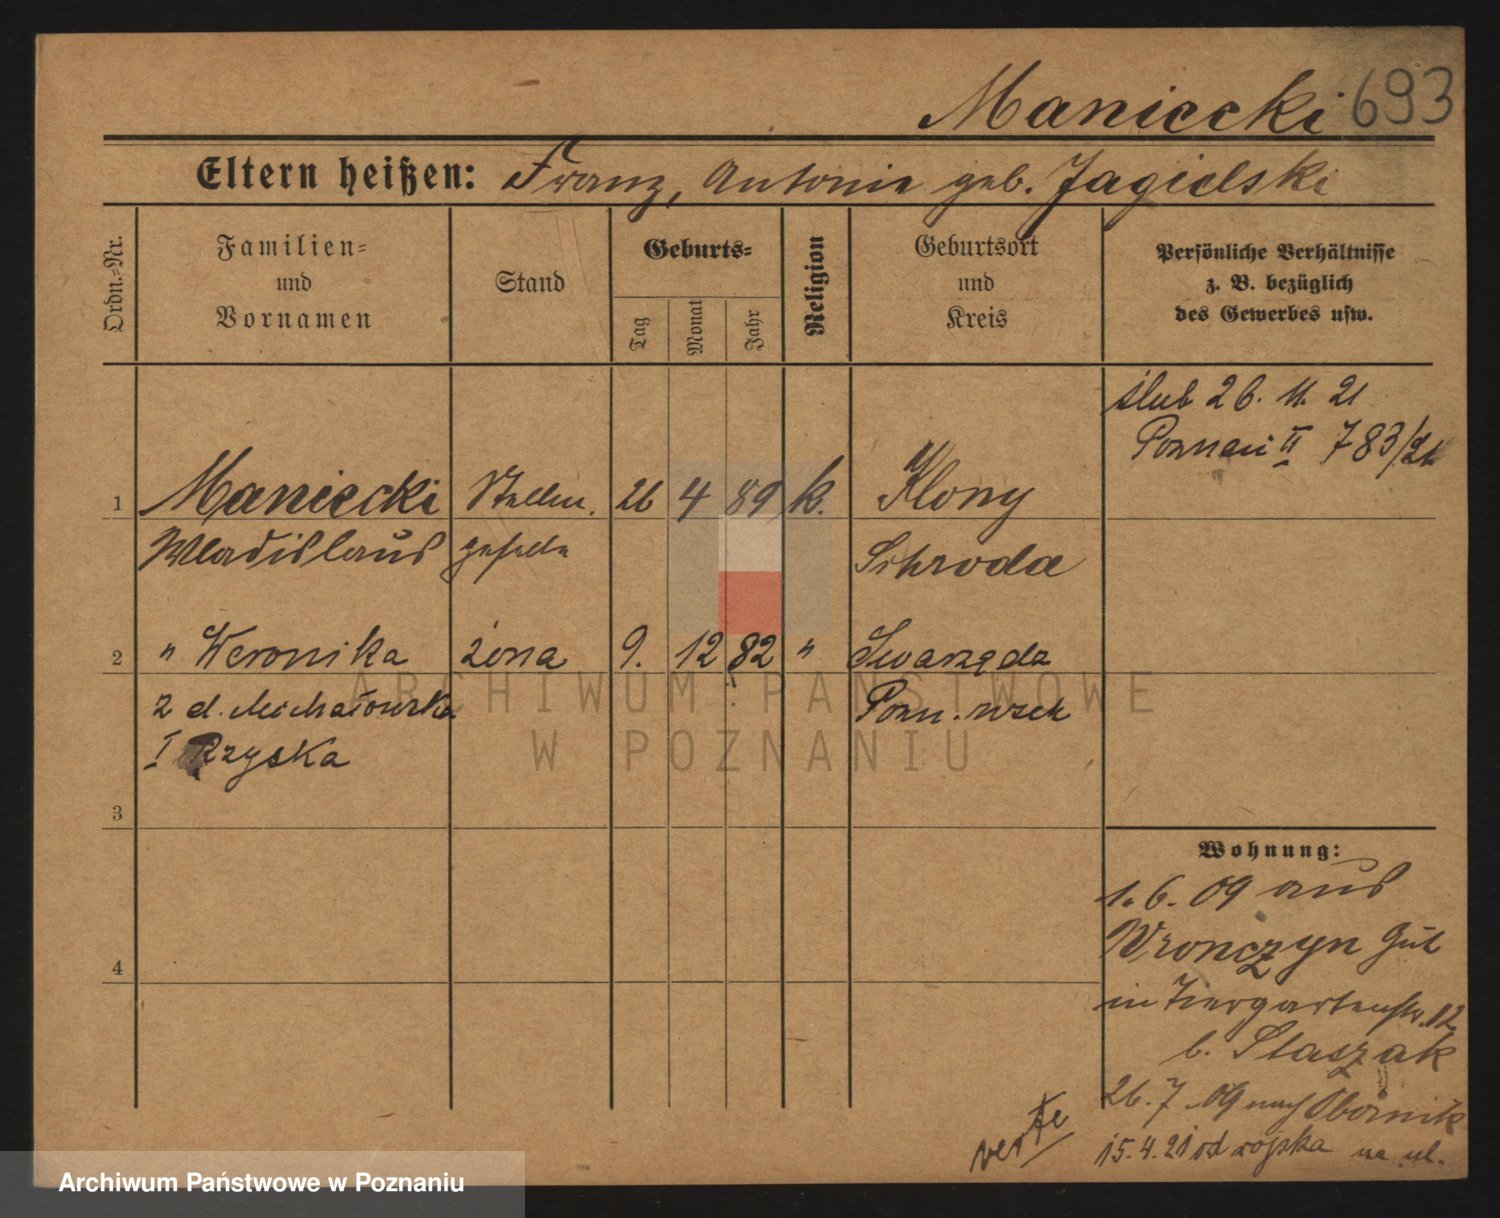 Maniecki 693
Eltern heißen: Franz, Antonie geb. Jagielski
Ordn.-Nr.
Familien-
und
Vornamen
Stand
Geburts-
Tag
Monat
Jahr
Religion
Geburtsort
und
Kreis
Persönliche Verhältnisse
z. B. bezüglich
des Gewerbes usw.
ślub 26. 11. 21
Poznań II 783/21
1 Maniecki Stellm. 26 4 89 k. Klony
Wladislaus geselle Schroda
2 " Weronika żona 9. 12 82 " Swarzędz
2 d. Michałowska Pozn. wsch
I Rzyska
3
Wohnung:
1. 6. 09 aus
Wronczyn Gut
in Tiergartenstr. 12
b. Staszak
4
26. 7. 09 nach Obornik
15. 4. 21 od wojska na ul.
verte
ARCHIWUM PAŃSTWOWE
W POZNANIU
Archiwum Państwowe w Poznaniu